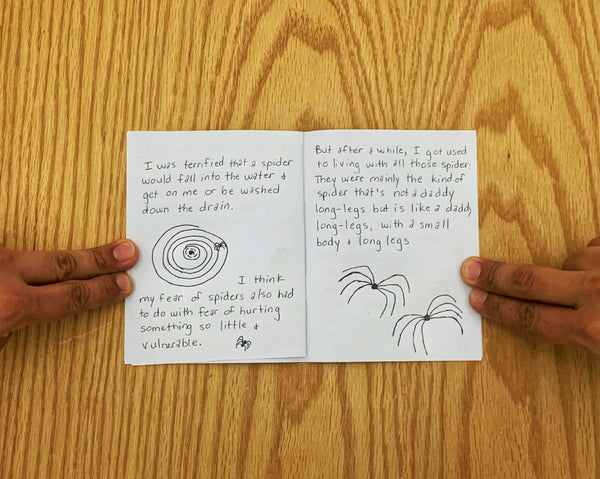 I was terrified that a spider
would fall into the water +
get on me or be washed
down the drain.
I think
my fear of spiders also had
to do with fear of hurting
something so little +
vulnerable.
But after a while, I got used
to living with all those spider
They were mainly the kind of
spider that's not a daddy
long-legs but is like a daddy
long-legs, with a small
body + long legs